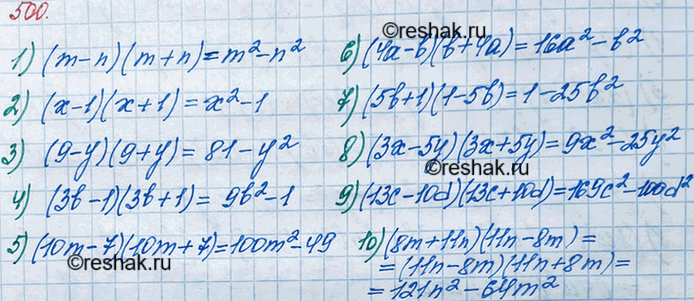 500.
©reshak.ru
1) (m-n)(m+n)=m²-n²
2) (x-1)(x+1)=x²-1
3) (9-y)(9+y)=81-y²
4) (3b-1)(3b+1)=9b²-1
5) (10m-7)(10m+7)=100m²-49
6) (4a-b)(b+4a)=16a²-b²
7) (5b+1)(1-5b)=1-25b²
8) (3x-5y)(3x+5y)=9x²-25y²
©reshak.ru
9) (13c-10d)(13c+10d)=169c²-100d²
10) (8m+11n)(11n-8m)=
=(11n-8m)(11n+8m)=
=121n²-64m²
©reshak.ru
©reshak.ru